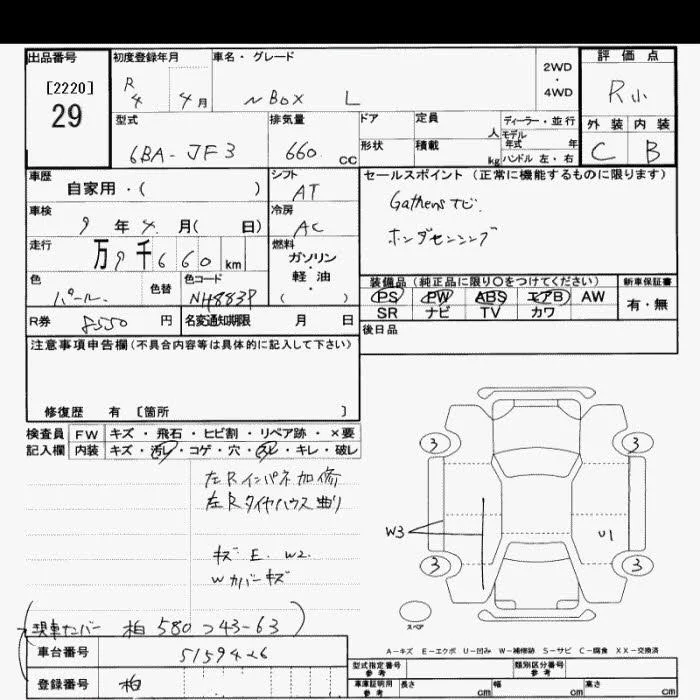 出品番号
[2220]
29
初度登録年月
R4 4月
車名・グレード
N BOX L
2WD・4WD
評価点
R小
外装 内装
C B
型式
6BA-JF3
排気量
660 CC
ドア
定員 人
ディーラー・並行
モデル年式 年
形状
積載 kg
ハンドル 左・右
車歴
自家用・( )
シフト
AT
セールスポイント(正常に機能するものに限ります)
Gathersナビ
ホンダセンシング
車検
9年4月( 日)
冷房
AC
走行
万9千660km
燃料
ガソリン・軽油
( )
色
パール
色替
色コード
NH883P
装備品(純正品に限り○をつけてください)
PS PW ABS エアB AW
SR ナビ TV カワ
新車保証書
有・無
R券 8550円
名変通知期限 月 日
後日品
注意事項申告欄(不具合内容等は具体的に記入して下さい)
修復歴 有 [箇所 ]
検査員記入欄
FW キズ・飛石・ヒビ割・リペア跡・×要
内装 キズ・汚レ・コゲ・穴・スレ・キレ・破レ
左Rインパネ加修
左Rタイヤハウス曲り
キズ E. W2.
Wカバーキズ
3 3
W3 U1
3 3
スペア
A-キズ E-エクボ U-凹み W-補修跡 S-サビ C-腐食 XX-交換済
現車ナンバー 柏 580 つ 43-63
車台番号 5159426
登録番号 柏
型式指定番号 参考
類別区分番号 参考
車庫証明用 参考
長さ cm 幅 cm 高さ cm